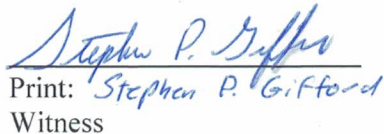 Stephen P. Gifford
Print: Stephen P. Gifford
Witness